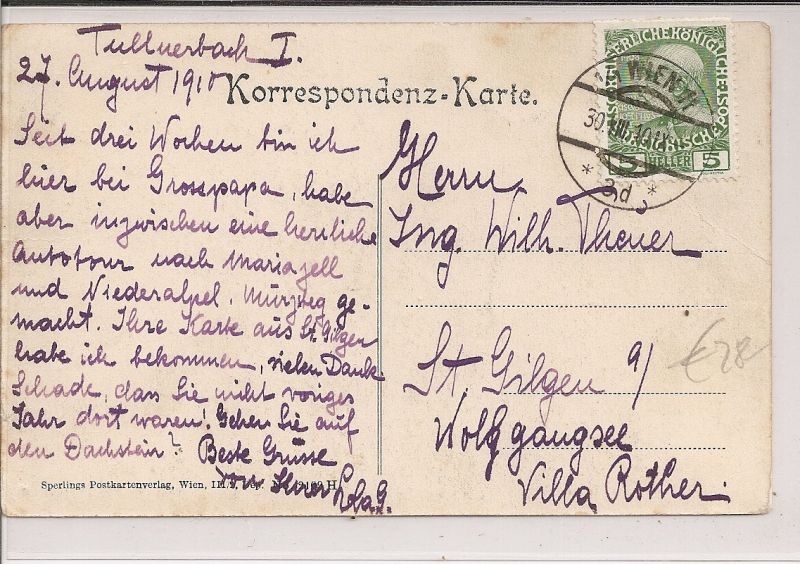 Tullnerbach I.
27. August 1910
Korrespondenz-Karte.
Seit drei Wochen bin ich
hier bei Grosspapa, habe
aber inzwischen eine herrliche
Autotour nach Mariazell
und Niederalpel, Mürzsteg ge-
macht. Ihre Karte aus St. Gilgen
habe ich bekommen, vielen Dank.
Schade, dass Sie nicht voriges
Jahr dort waren! Gehen Sie auf
den Dachstein? Beste Grüsse
von Ihrer Lola G.
Sperlings Postkartenverlag, Wien, III/2, Dep. No.
Herrn
Ing. Wilh. Theuer
St. Gilgen a/
Wolfgangsee
Villa Rother.
€28
WIEN
30. VIII. 10
* 3d *
KAISERLICHE KÖNIGLICHE ÖSTERREICHISCHE POST
5 HELLER 5